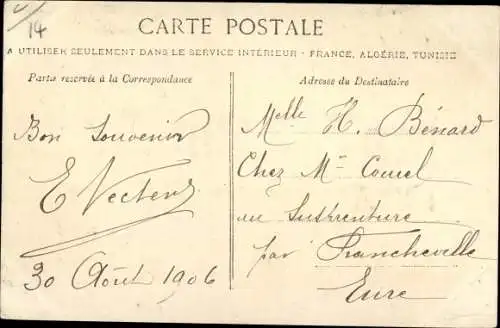 14
CARTE POSTALE
A UTILISER SEULEMENT DANS LE SERVICE INTÉRIEUR - FRANCE, ALGÉRIE, TUNISIE
Partie réservée à la Correspondance
Adresse du Destinataire
Bon Souvenir
30 Août 1906
Melle H. Bénard
Chez Mme
par Francheville
Eure